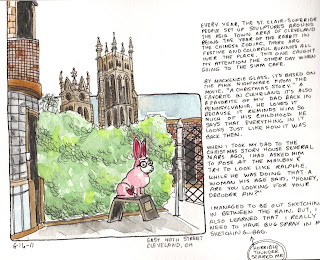 EVERY YEAR, THE ST. CLAIR-SUPERIOR
PEOPLE SET UP SCULPTURES AROUND
THE ASIA TOWN AREA OF CLEVELAND
BEING THE YEAR OF THE RABBIT IN
THE CHINESE ZODIAC, THERE ARE
FESTIVE AND COLORFUL BUNNIES ALL
OVER THE PLACE. THIS ONE CAUGHT
MY ATTENTION THE OTHER DAY WHEN
GOING TO THE SIAM CAFE.
BY MACKENZIE GLASS, IT'S BASED ON
THE PINK NIGHTMARE FROM THE
MOVIE, "A CHRISTMAS STORY." A
FAVORITE IN CLEVELAND IT'S ALSO
A FAVORITE OF MY DAD BACK IN
PENNSYLVANIA. HE LOVES IT
BECAUSE IT REMINDS HIM SO
MUCH OF HIS CHILDHOOD. HE
SAYS THAT EVERYTHING IN IT
LOOKS JUST LIKE HOW IT WAS
BACK THEN.
WHEN I TOOK MY DAD TO THE
CHRISTMAS STORY HOUSE SEVERAL
YEARS AGO, I HAD ASKED HIM
TO POSE AT THE MAILBOX &
TRY TO LOOK LIKE RALPHIE.
WHILE HE WAS DOING THAT A
WOMAN HIS AGE SAID, "HONEY,
ARE YOU LOOKING FOR YOUR
DECODER PIN?"
I MANAGED TO BE OUT SKETCHING
IN BETWEEN THE RAIN. BUT, I
ALSO LEARNED THAT I REALLY
NEED TO HAVE BUG SPRAY IN MY
SKETCHING BAG.
HORRIBLE
THUNDER
SCARED ME
6-16-11
EAST 40TH STREET
CLEVELAND, OH